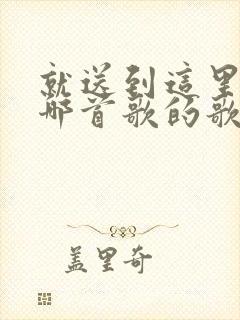 就送到這里
哪首歌的歌
盖里奇